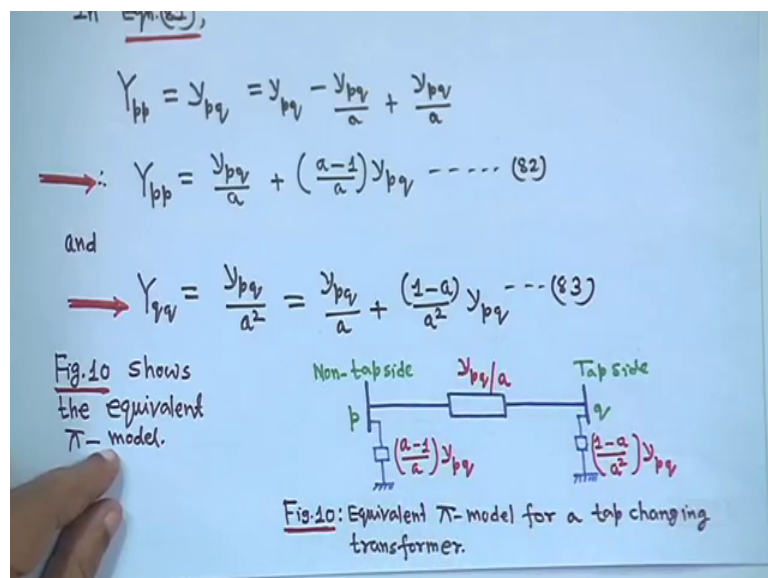 In Eqn.(81),
Y_pp = y_pq = y_pq - y_pq/a + y_pq/a
∴ Y_pp = y_pq/a + ((a-1)/a) y_pq ----- (82)
and
Y_qq = y_pq/a² = y_pq/a + ((1-a)/a²) y_pq --- (83)
Fig.10 shows
the equivalent
π-model.
Non-tap side
y_pq/a
Tap side
p
q
((a-1)/a) y_pq
((1-a)/a²) y_pq
Fig.10: Equivalent π-model for a tap changing
transformer.